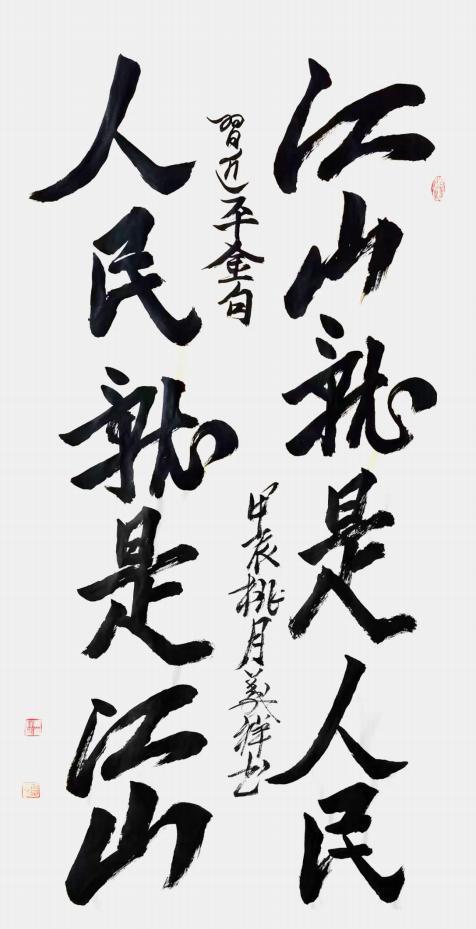 江山就是人民
人民就是江山
習近平金句
甲辰桃月美祥书